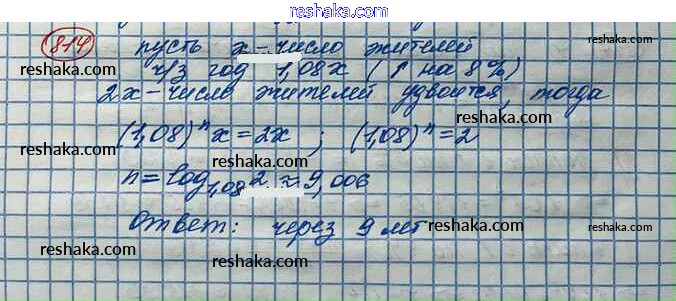 www.reshaka.com
814 пусть x - число жителей
reshaka.com ч/з год 1,08x (↑ на 8%) reshaka.com
2x - число жителей удвоится, тогда
(1,08)ⁿx = 2x ; (1,08)ⁿ = 2
reshaka.com reshaka.com
n = log₁,₀₈2 ≈ 9,006
reshaka.com
Ответ: через 9 лет
reshaka.com reshaka.com
reshaka.com